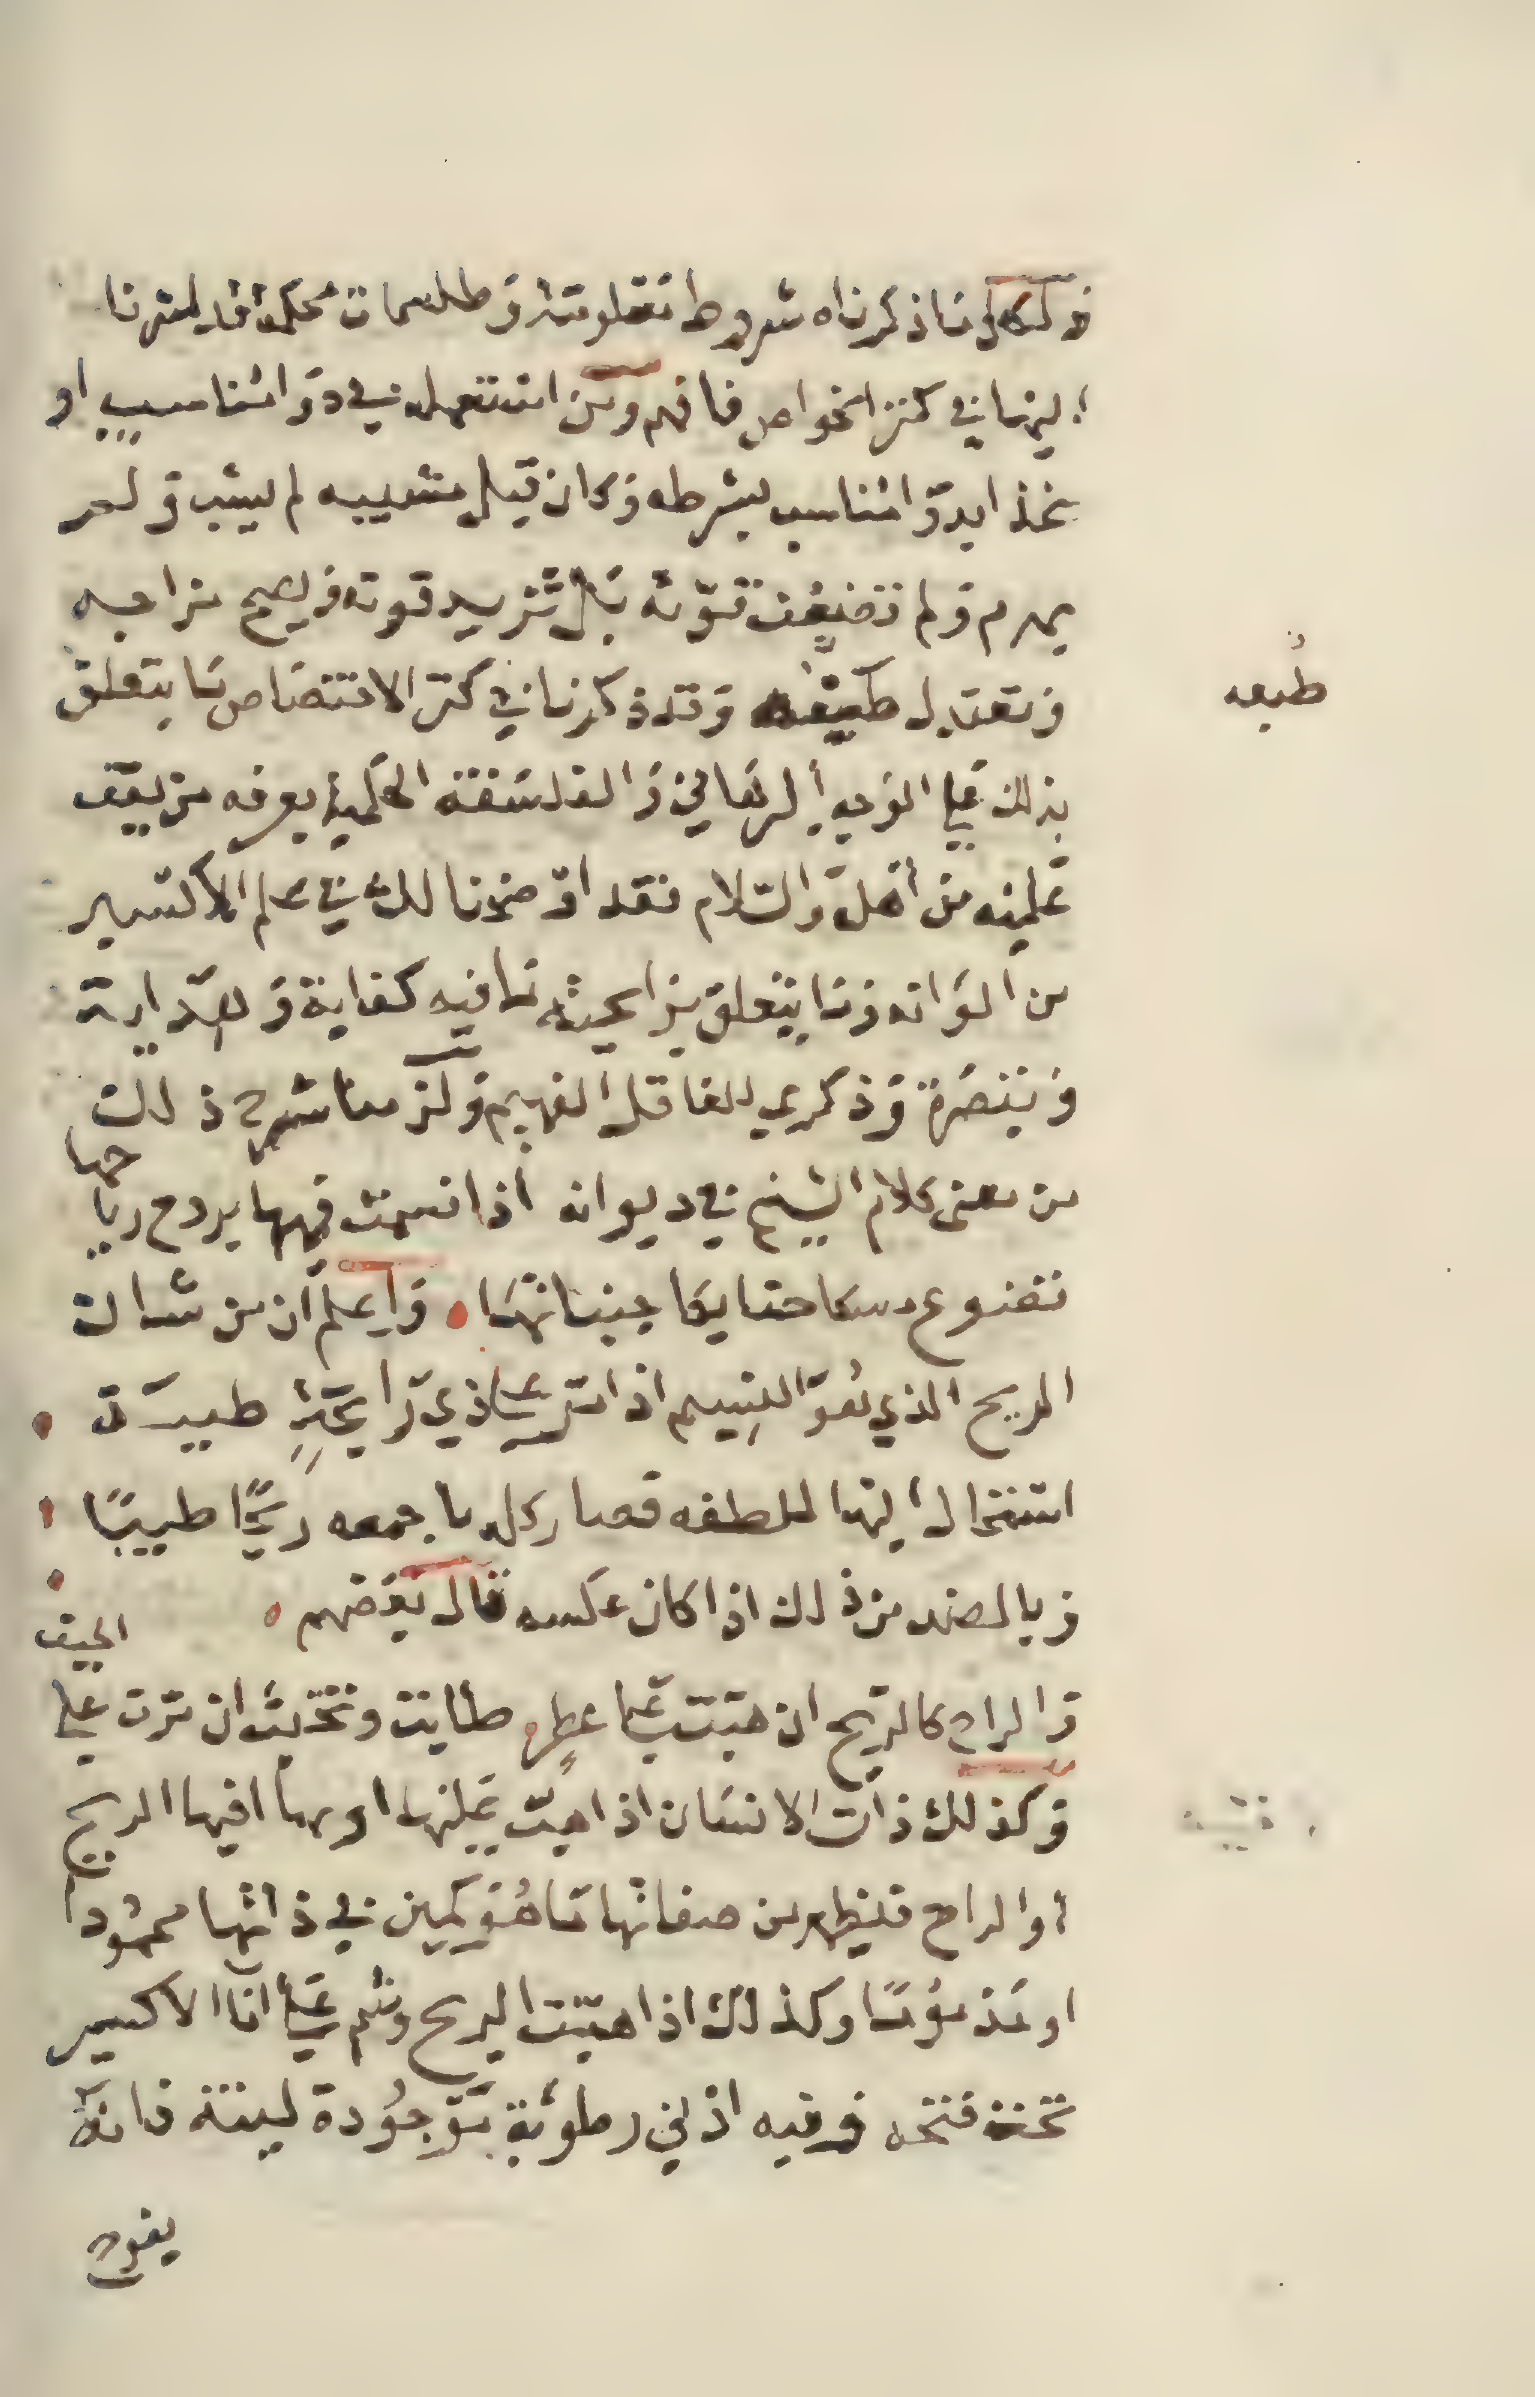 ولكل ما ذكرناه شروط معلومة وطلسمات محكمة قد اشرنا
اليها في كنز الخواص فافهم ومن استعمل في دوا مناسب او
غذا بدوا مناسب بشرطه وكان قبل مشيبه لم يشب ولم
يهرم ولم تضعف قوته بل تزيد قوته ويصح مزاجه
ويعتدل طبعه وقد ذكرنا في كنز الاختصاص ما يتعلق
بذلك على الوجه الرباني والفلسفة الحكمية يعرفه من يقف
عليه من اهله والسلام فقد اوضحنا لك في علم الاكسير
من الوانه وما يتعلق برايحته ما فيه كفاية وهداية
وتبصرة وذكرى للعاقل الفهيم ولنرمعا شرح ذلك
من معنى كلام الشيخ في ديوانه اذا نسمت فيها بروح رياحها
تضوع مسكا حنايا جنباتها واعلم ان من شان
الريح الذي هو النسيم اذا مر على ذي رايحة طيبة
استحال اليها للطفه فصار كل ما جمعه ريحا طيبا
وبالضد من ذلك اذا كان عكسه قال بعضهم
والراح كالريح ان هبت على عطر طابت وتخبث ان مرت على الجيف
وكذلك ذات الانسان اذا هبت عليها او بها فيها الريح
او الراح فيظهر من صفاتها ما هو كمين في ذاتها محمودا
او مذموما وكذلك اذا هبت الريح وشم على انا الاكسير
عند فتحه وفيه ادنى رطوبة موجودة لينة فانه
يفوح
طبعه